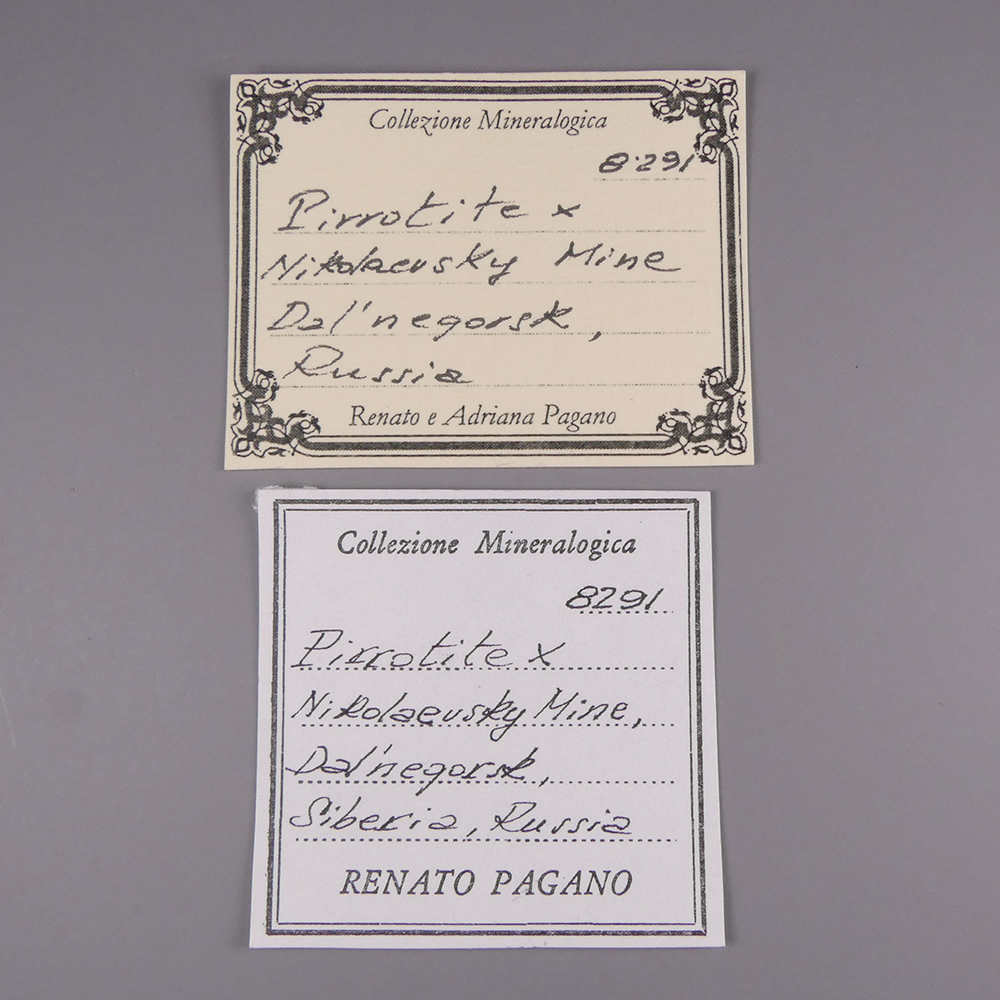 Collezione Mineralogica
8291
Pirrotite x
Nikolaevsky Mine
Dal'negorsk,
Russia
Renato e Adriana Pagano
Collezione Mineralogica
8291
Pirrotite x
Nikolaevsky Mine,
Dal'negorsk,
Siberia, Russia
RENATO PAGANO